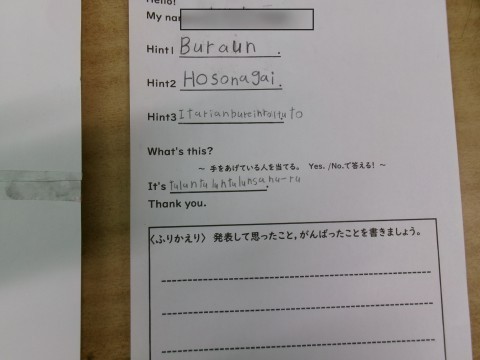 Hello!
My nam
Hint1 Buraun.
Hint2 Hosonagai.
Hint3
What's this?
～ 手をあげている人を当てる。 Yes. /No.で答える! ～
It's
Thank you.
〈ふりかえり〉 発表して思ったこと,がんばったことを書きましょう。